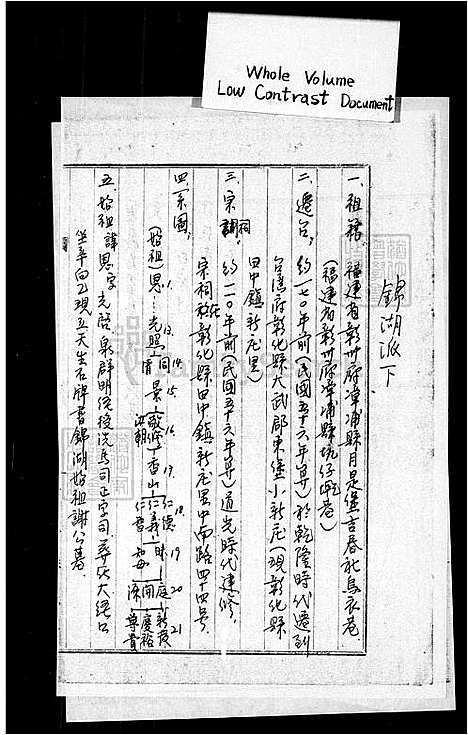 Whole Volume
Low Contrast Document
錦湖派下
一、祖籍、福建省彰州府漳浦縣月是堡吉春社烏衣巷
(福建省彰州府漳浦縣坑仔乾巷)
二、遷台、約一七〇年前(民國五十六年算)於乾隆時代遷到
台灣府彰化縣大武郡東堡小新庄(現彰化縣
田中鎮新庄里)
三、宗祠、約一一〇年前(民國五十六年算)道光時代建修、
宗祠於彰化縣田中鎮新庄里中南路四十四号、
四、系圖、
1. 13. 14. 15. 16. 17. 18. 19 20 21
(始祖)恩…光照 同 景 敬修 香山 仁德
仁義
洪朝
五、始祖諱恩字光啓泉群明統後洗馬司正字司、葬於大
坐辛向乙現立天生石牌書錦湖始祖謝公墓、